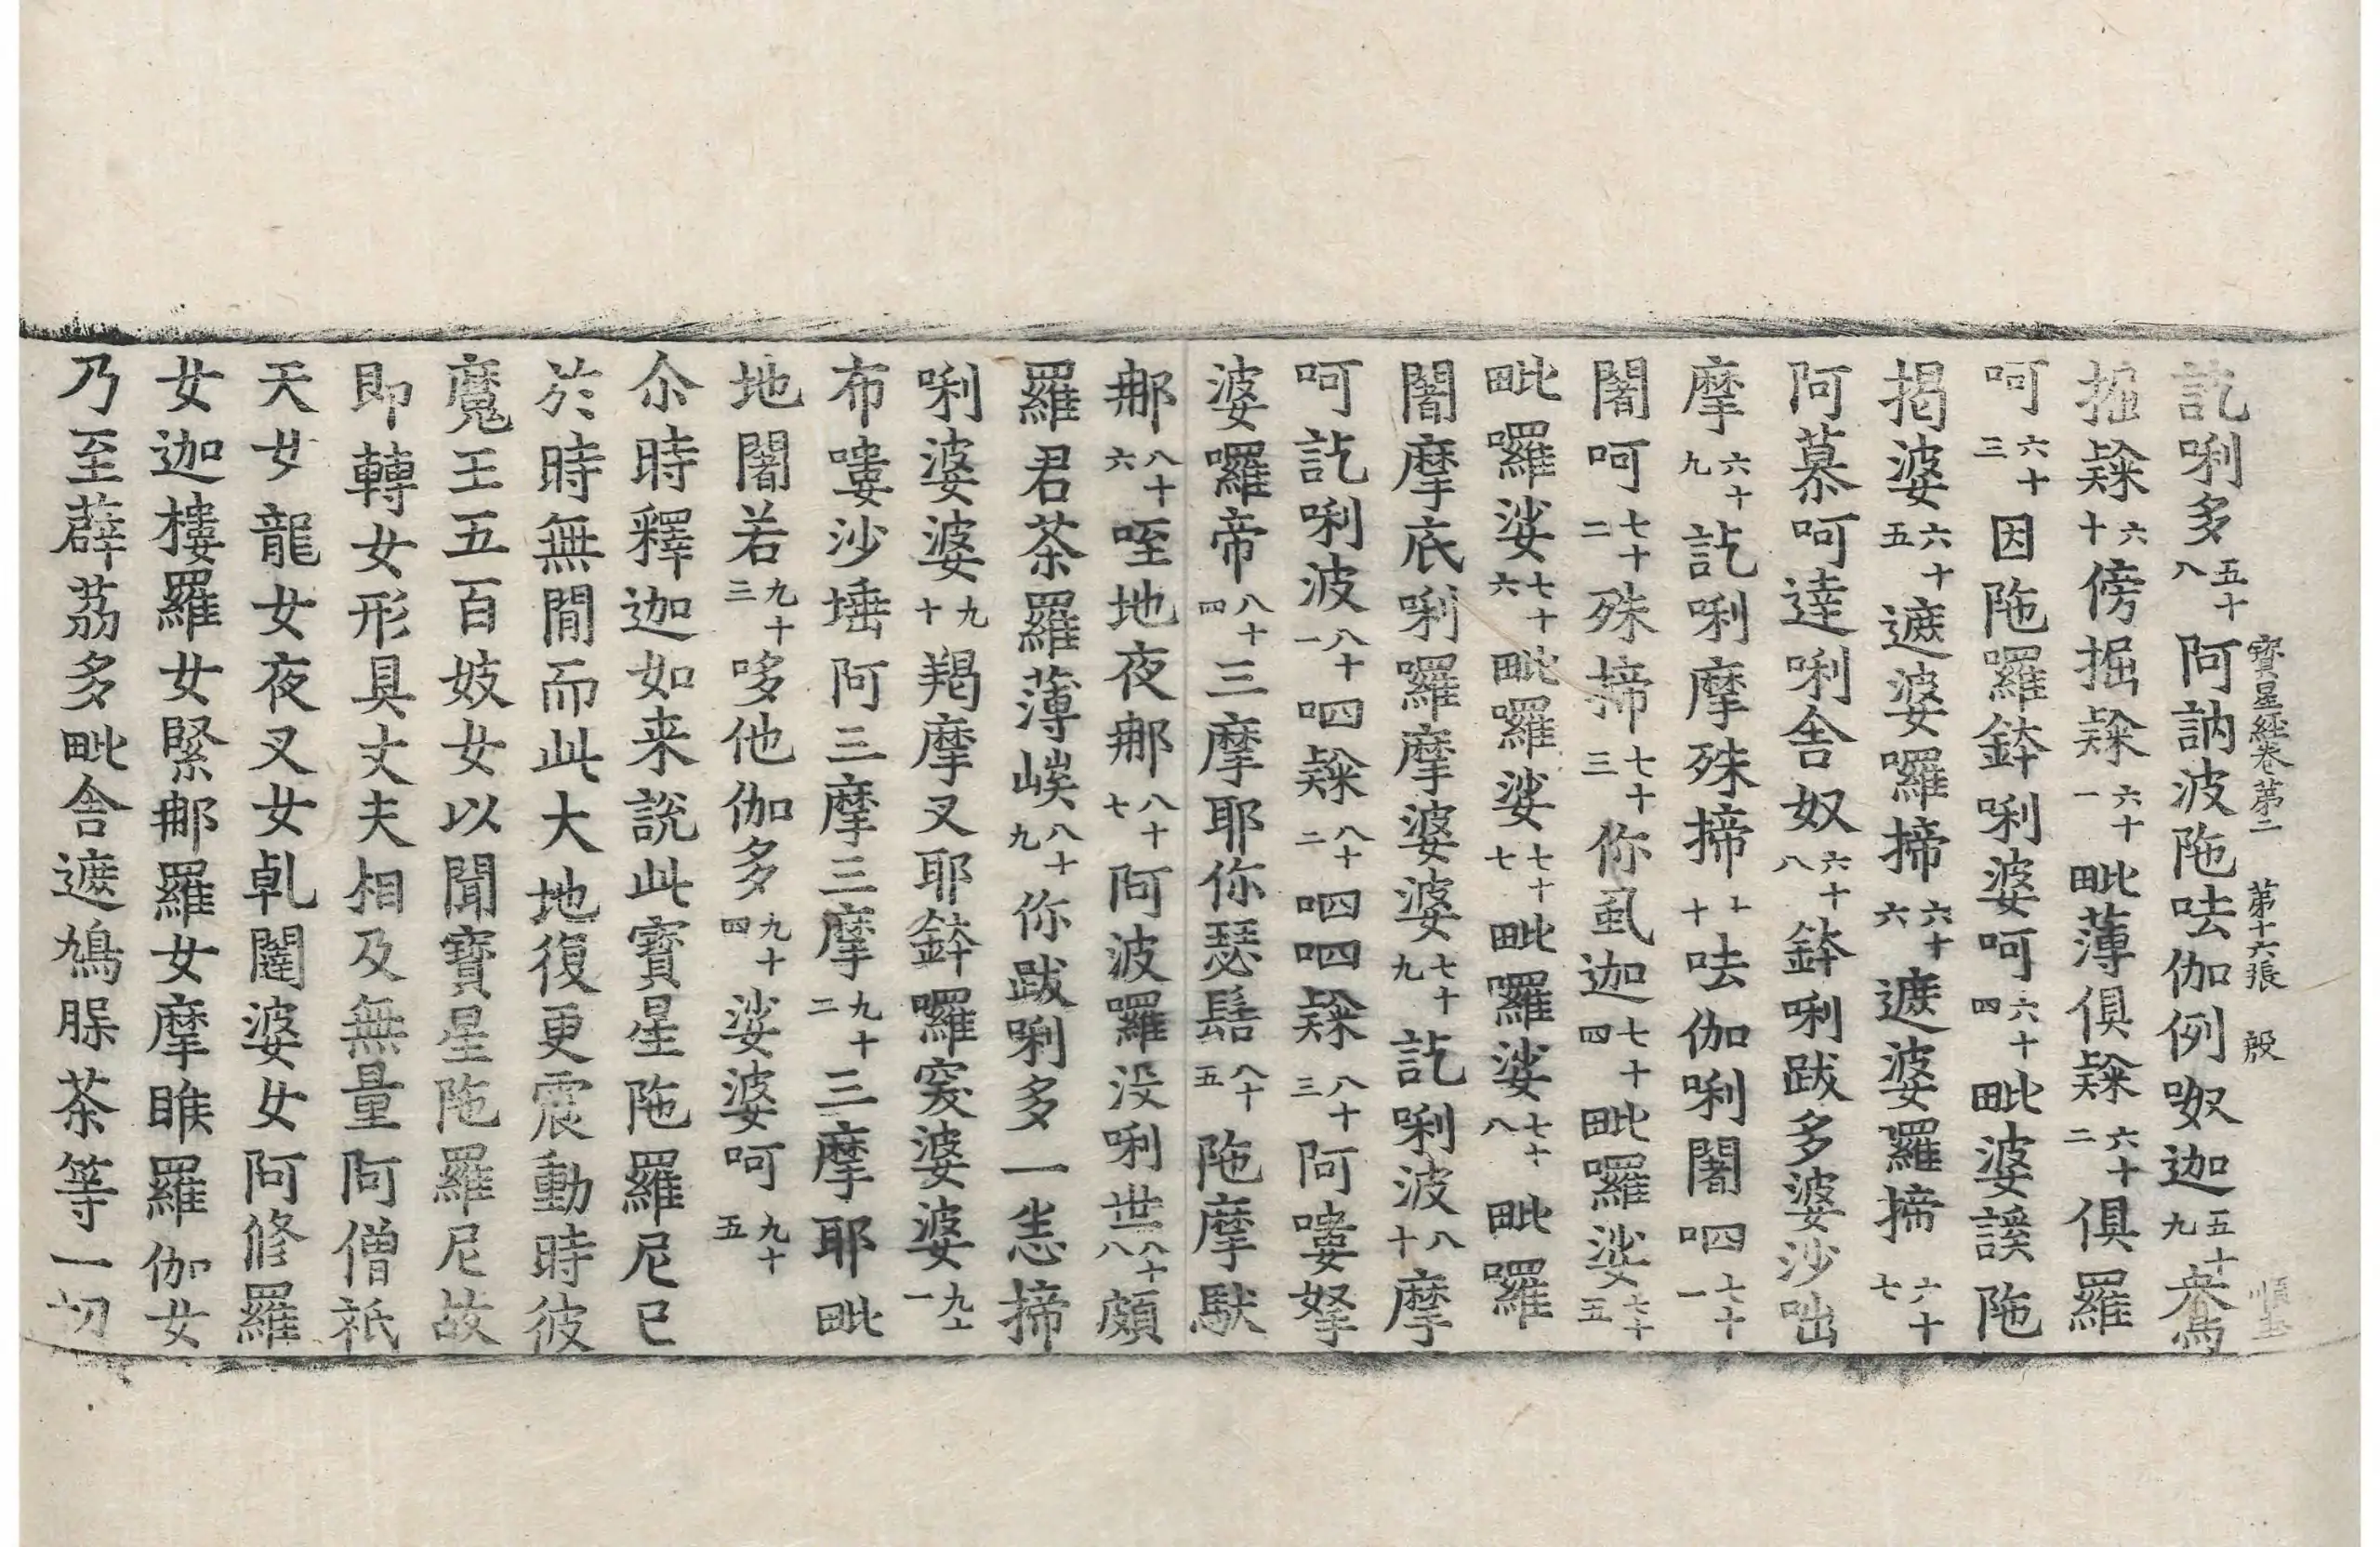 寶星經卷第二 第十六張 殷
訖唎多五十八阿訥波陁呿伽例呶迦五十九叅駡
掘㲘六十傍掘㲘六十一毗薄俱㲘六十二俱羅
呵六十三因陁羅鉢唎婆呵六十四毗婆謑陁
揭婆六十五遮婆囉揥六十六遮婆羅揥六十七
阿慕呵達唎舎奴六十八鉢唎跋多婆沙咄
摩六十九訖唎摩殊揥十呿伽唎闍呬七十一
闍呵七十二殊揥七十三你虱迦七十四毗囉娑七十五
毗囉娑七十六毗囉娑七十七毗囉娑七十八毗囉
闍摩底唎囉摩婆婆七十九訖唎波八十摩
呵訖唎波八十一呬㲘八十二呬呬㲘八十三阿嘍拏
婆囉帝八十四三摩耶你瑟𩮜八十五陁摩馱
𨙻八十六咥地夜𨙻八十七阿波羅没唎世八十八頗
羅君茶羅薄㠊八十九你跋唎多一恙揥
唎婆婆九十羯摩叉耶鉢囉窔婆婆九十一
布嘍沙埵阿三摩三摩九十二三摩耶毗
地闍若九十三哆他伽多九十四娑婆呵九十五
尒時釋迦如来說此寶星陁羅尼已
於時無閒而此大地復更震動時彼
魔王五百妓女以聞寶星陁羅尼故
即轉女形具丈夫相及無量阿僧祇
天女龍女夜叉女乹闥婆女阿修羅
女迦樓羅女緊𨙻羅女摩睺羅伽女
乃至薜茘多毗舎遮鳩䐗茶等一切